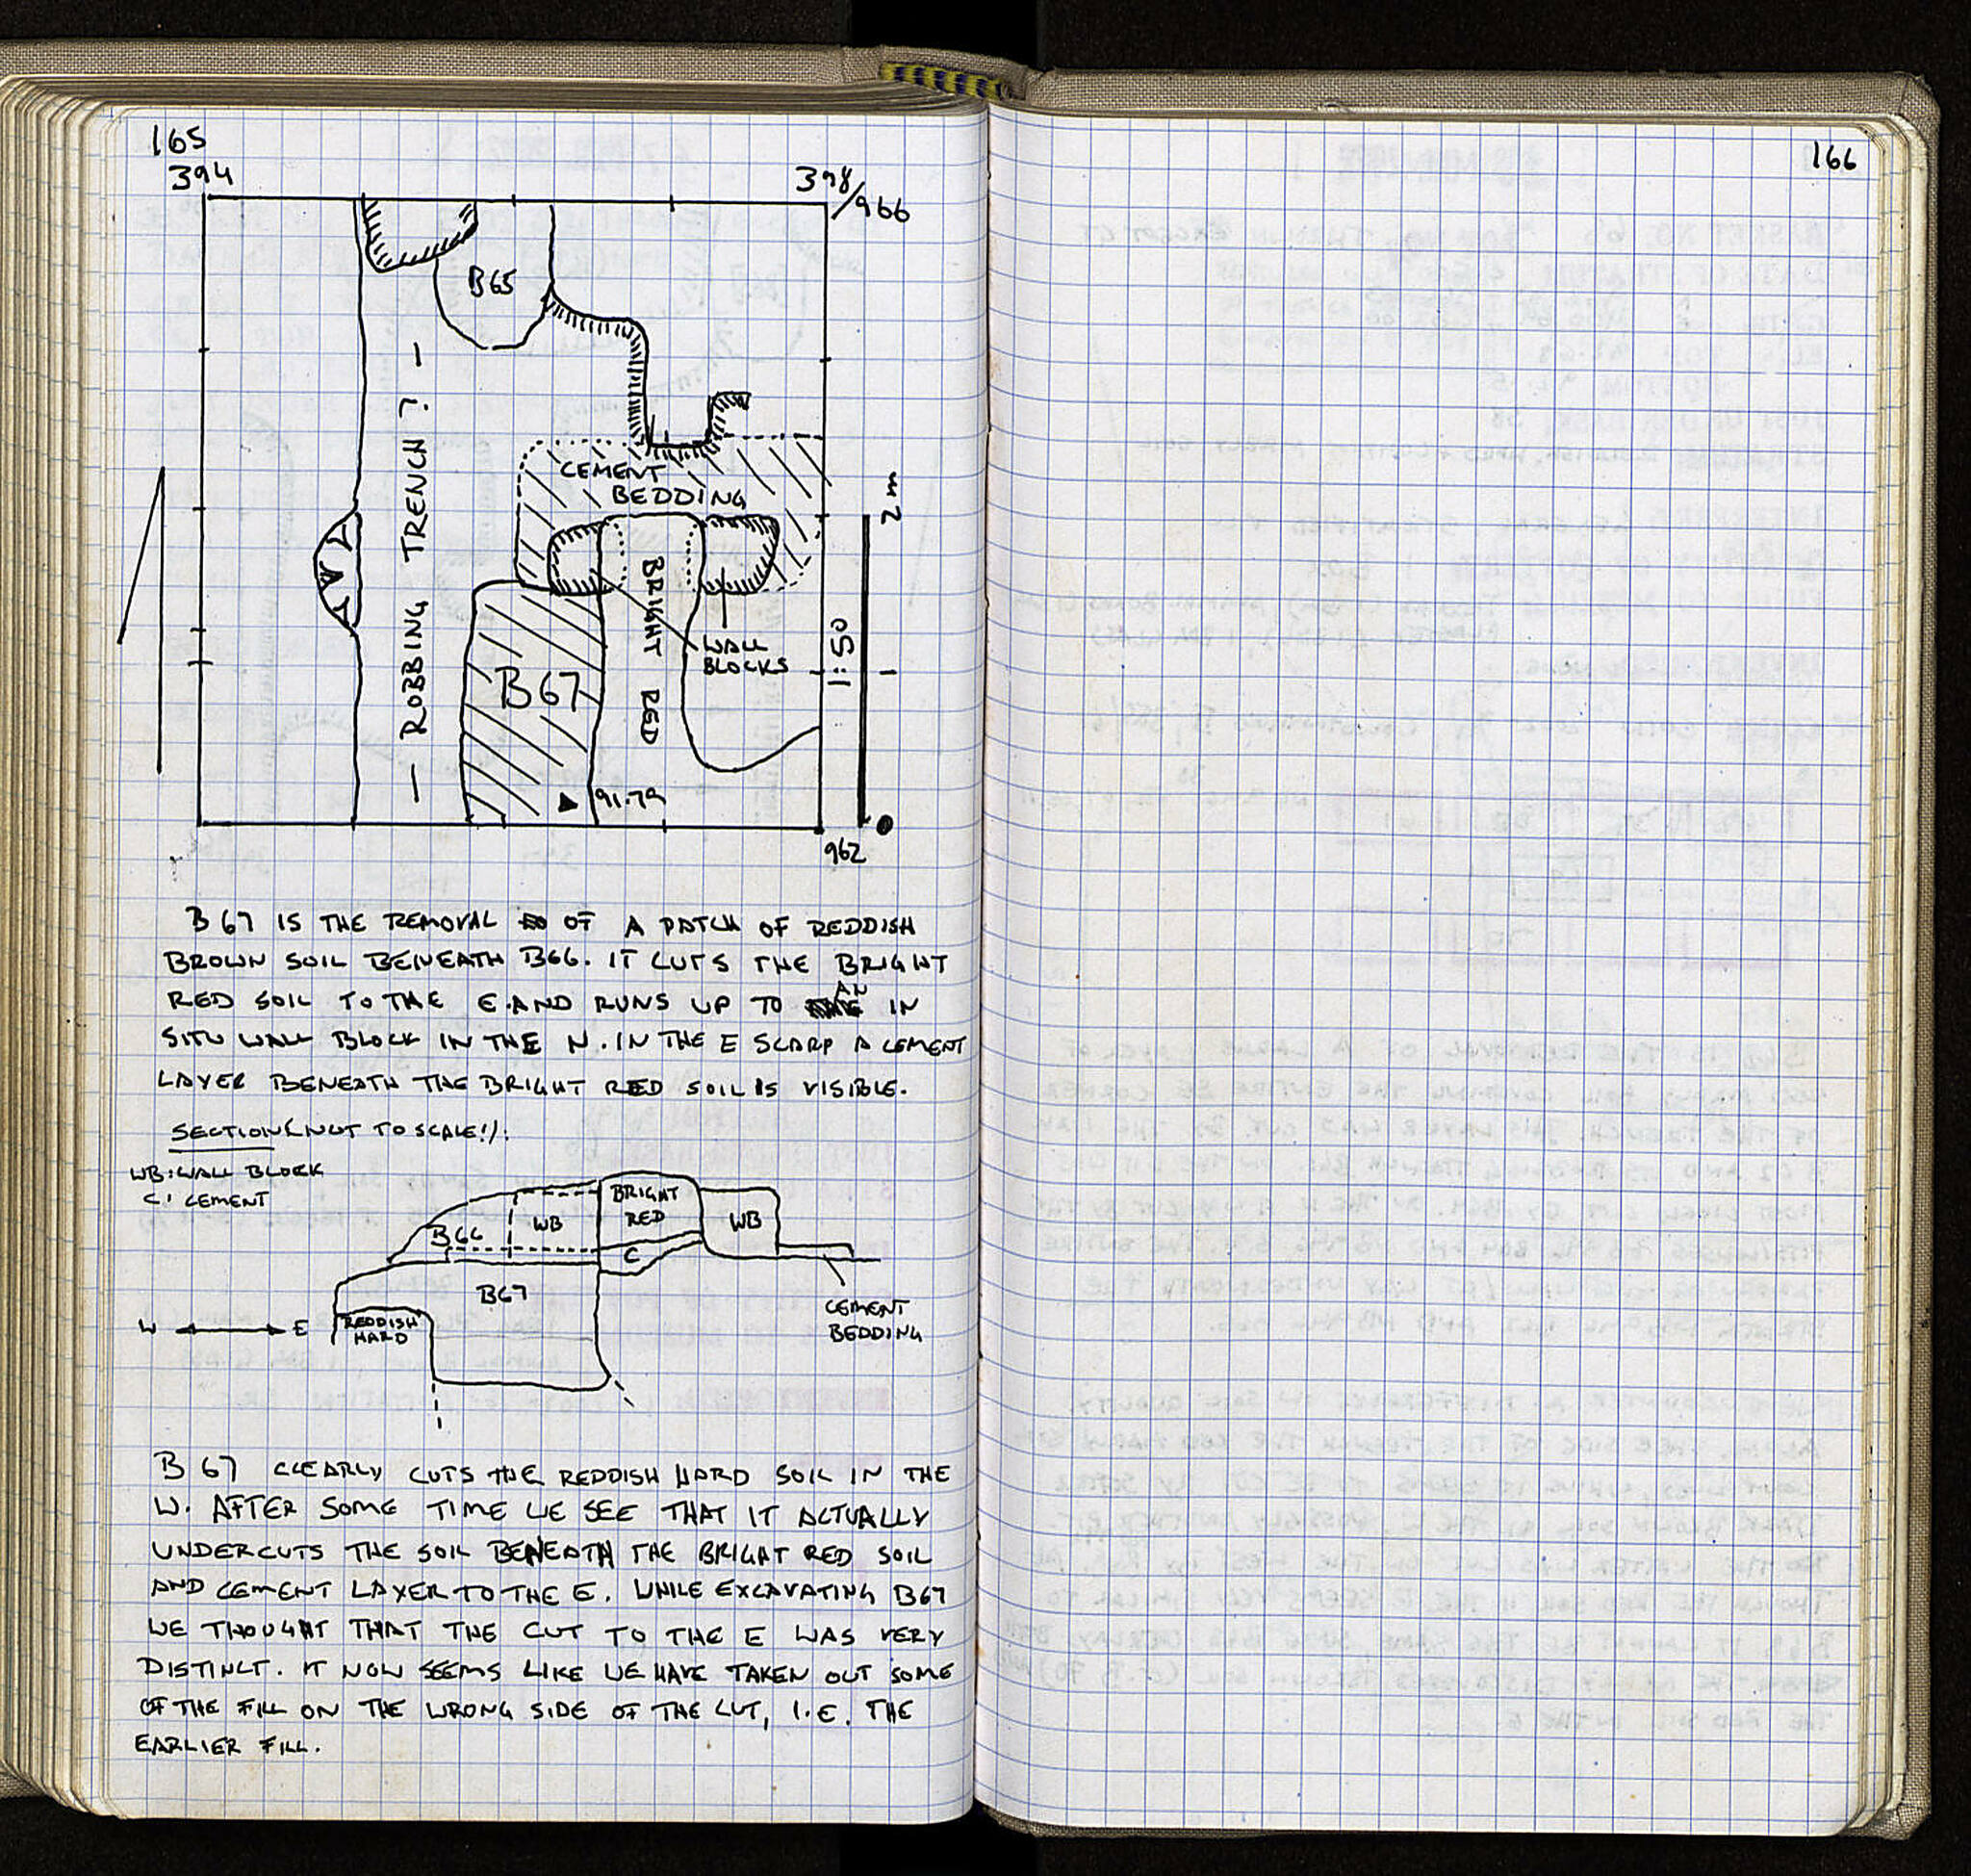 165
394
398/966
B65
— ROBBING TRENCH? —
CEMENT
BEDDING
BRIGHT RED
WALL
BLOCKS
B67
91.79
2 m
1
0
1:50
962
B67 IS THE REMOVAL OF A PATCH OF REDDISH
BROWN SOIL BENEATH B66. IT CUTS THE BRIGHT
RED SOIL TO THE E. AND RUNS UP TO AN IN
SITU WALL BLOCK IN THE N. IN THE E SCARP A CEMENT
LAYER BENEATH THE BRIGHT RED SOIL IS VISIBLE.
SECTION (NOT TO SCALE!):
WB: WALL BLOCK
C: CEMENT
BRIGHT
RED
WB
WB
B66
C
B67
REDDISH
HARD
W E
CEMENT
BEDDING
B67 CLEARLY CUTS THE REDDISH HARD SOIL IN THE
W. AFTER SOME TIME WE SEE THAT IT ACTUALLY
UNDERCUTS THE SOIL BENEATH THE BRIGHT RED SOIL
AND CEMENT LAYER TO THE E. WHILE EXCAVATING B67
WE THOUGHT THAT THE CUT TO THE E WAS VERY
DISTINCT. IT NOW SEEMS LIKE WE HAVE TAKEN OUT SOME
OF THE FILL ON THE WRONG SIDE OF THE CUT, I.E. THE
EARLIER FILL.
166